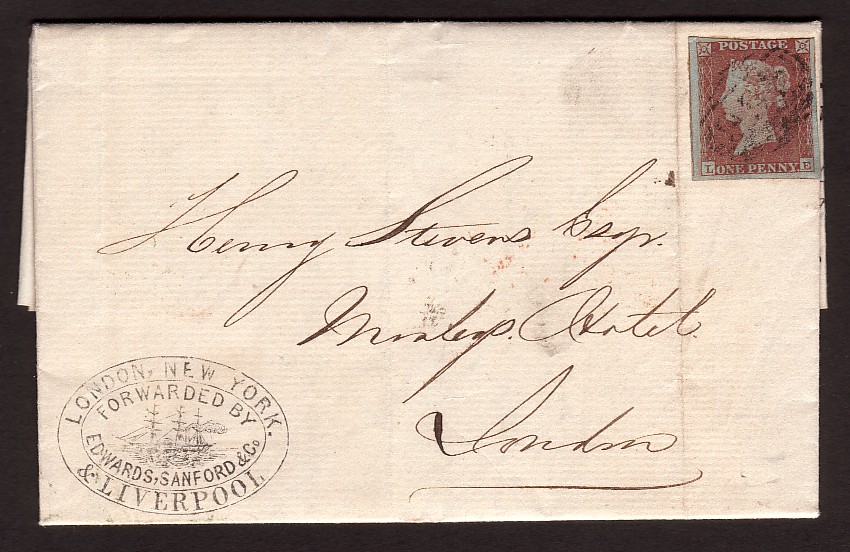 POSTAGE
L ONE PENNY E
Henry Stevens Esqr.
Morleys. Hotel.
London
LONDON, NEW YORK.
FORWARDED BY
EDWARDS, SANFORD & Co
& LIVERPOOL